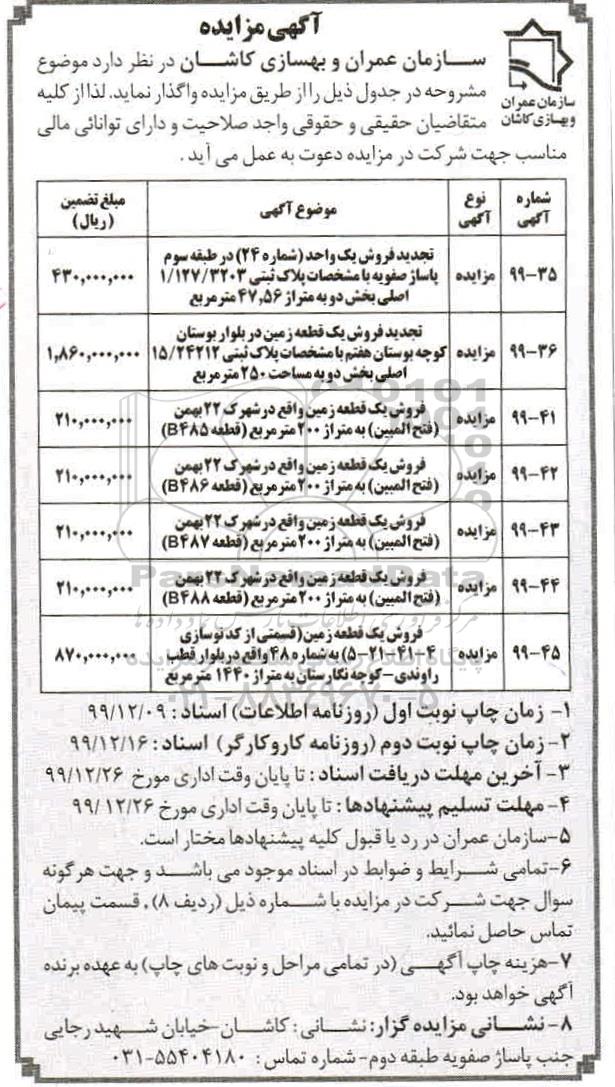 آگهی مزایده
سازمان عمران
و بهسازی کاشان
سازمان عمران و بهسازی کاشان در نظر دارد موضوع
مشروحه در جدول ذیل را از طریق مزایده واگذار نماید. لذا از کلیه
متقاضیان حقیقی و حقوقی واجد صلاحیت و دارای توانائی مالی
مناسب جهت شرکت در مزایده دعوت به عمل می آید.
شماره آگهی نوع آگهی موضوع آگهی مبلغ تضمین (ریال)
۹۹-۳۵ مزایده تجدید فروش یک واحد (شماره ۲۴) در طبقه سوم
پاساژ صفویه با مشخصات پلاک ثبتی ۱/۱۲۷/۳۲۰۳
اصلی بخش دو به متراژ ۴۷,۵۶ متر مربع ۴۳۰,۰۰۰,۰۰۰
۹۹-۳۶ مزایده تجدید فروش یک قطعه زمین در بلوار بوستان
کوچه بوستان هفتم با مشخصات پلاک ثبتی ۱۵/۲۴۲۱۲
اصلی بخش دو به مساحت ۲۵۰ متر مربع ۱,۸۶۰,۰۰۰,۰۰۰
۹۹-۴۱ مزایده فروش یک قطعه زمین واقع در شهرک ۲۲ بهمن
(فتح المبین) به متراژ ۲۰۰ متر مربع (قطعه B۴۸۵) ۲۱۰,۰۰۰,۰۰۰
۹۹-۴۲ مزایده فروش یک قطعه زمین واقع در شهرک ۲۲ بهمن
(فتح المبین) به متراژ ۲۰۰ متر مربع (قطعه B۴۸۶) ۲۱۰,۰۰۰,۰۰۰
۹۹-۴۳ مزایده فروش یک قطعه زمین واقع در شهرک ۲۲ بهمن
(فتح المبین) به متراژ ۲۰۰ متر مربع (قطعه B۴۸۷) ۲۱۰,۰۰۰,۰۰۰
۹۹-۴۴ مزایده فروش یک قطعه زمین واقع در شهرک ۲۲ بهمن
(فتح المبین) به متراژ ۲۰۰ متر مربع (قطعه B۴۸۸) ۲۱۰,۰۰۰,۰۰۰
ParsNamadData
۹۹-۴۵ مزایده فروش یک قطعه زمین (قسمتی از کد نوسازی
۵-۲۱-۴۱-۴) به شماره ۴۸ واقع در بلوار قطب
راوندی-کوچه نگارستان به متراژ ۱۴۴۰ متر مربع ۸۷۰,۰۰۰,۰۰۰
۰۲۱-۸۸۳۴۹۶۷۰-۵
۱- زمان چاپ نوبت اول (روزنامه اطلاعات) اسناد: ۹۹/۱۲/۰۹
۲- زمان چاپ نوبت دوم (روزنامه کار و کارگر) اسناد: ۹۹/۱۲/۱۶
۳- آخرین مهلت دریافت اسناد: تا پایان وقت اداری مورخ ۹۹/۱۲/۲۶
۴- مهلت تسلیم پیشنهادها: تا پایان وقت اداری مورخ ۹۹/۱۲/۲۶
۵-سازمان عمران در رد یا قبول کلیه پیشنهادها مختار است.
۶-تمامی شرایط و ضوابط در اسناد موجود می باشد و جهت هرگونه
سوال جهت شرکت در مزایده با شماره ذیل (ردیف ۸)، قسمت پیمان
تماس حاصل نمائید.
۷-هزینه چاپ آگهی (در تمامی مراحل و نوبت های چاپ) به عهده برنده
آگهی خواهد بود.
۸- نشانی مزایده گزار: نشانی: کاشان-خیابان شهید رجایی
جنب پاساژ صفویه طبقه دوم- شماره تماس: ۵۵۴۰۴۱۸۰-۰۳۱